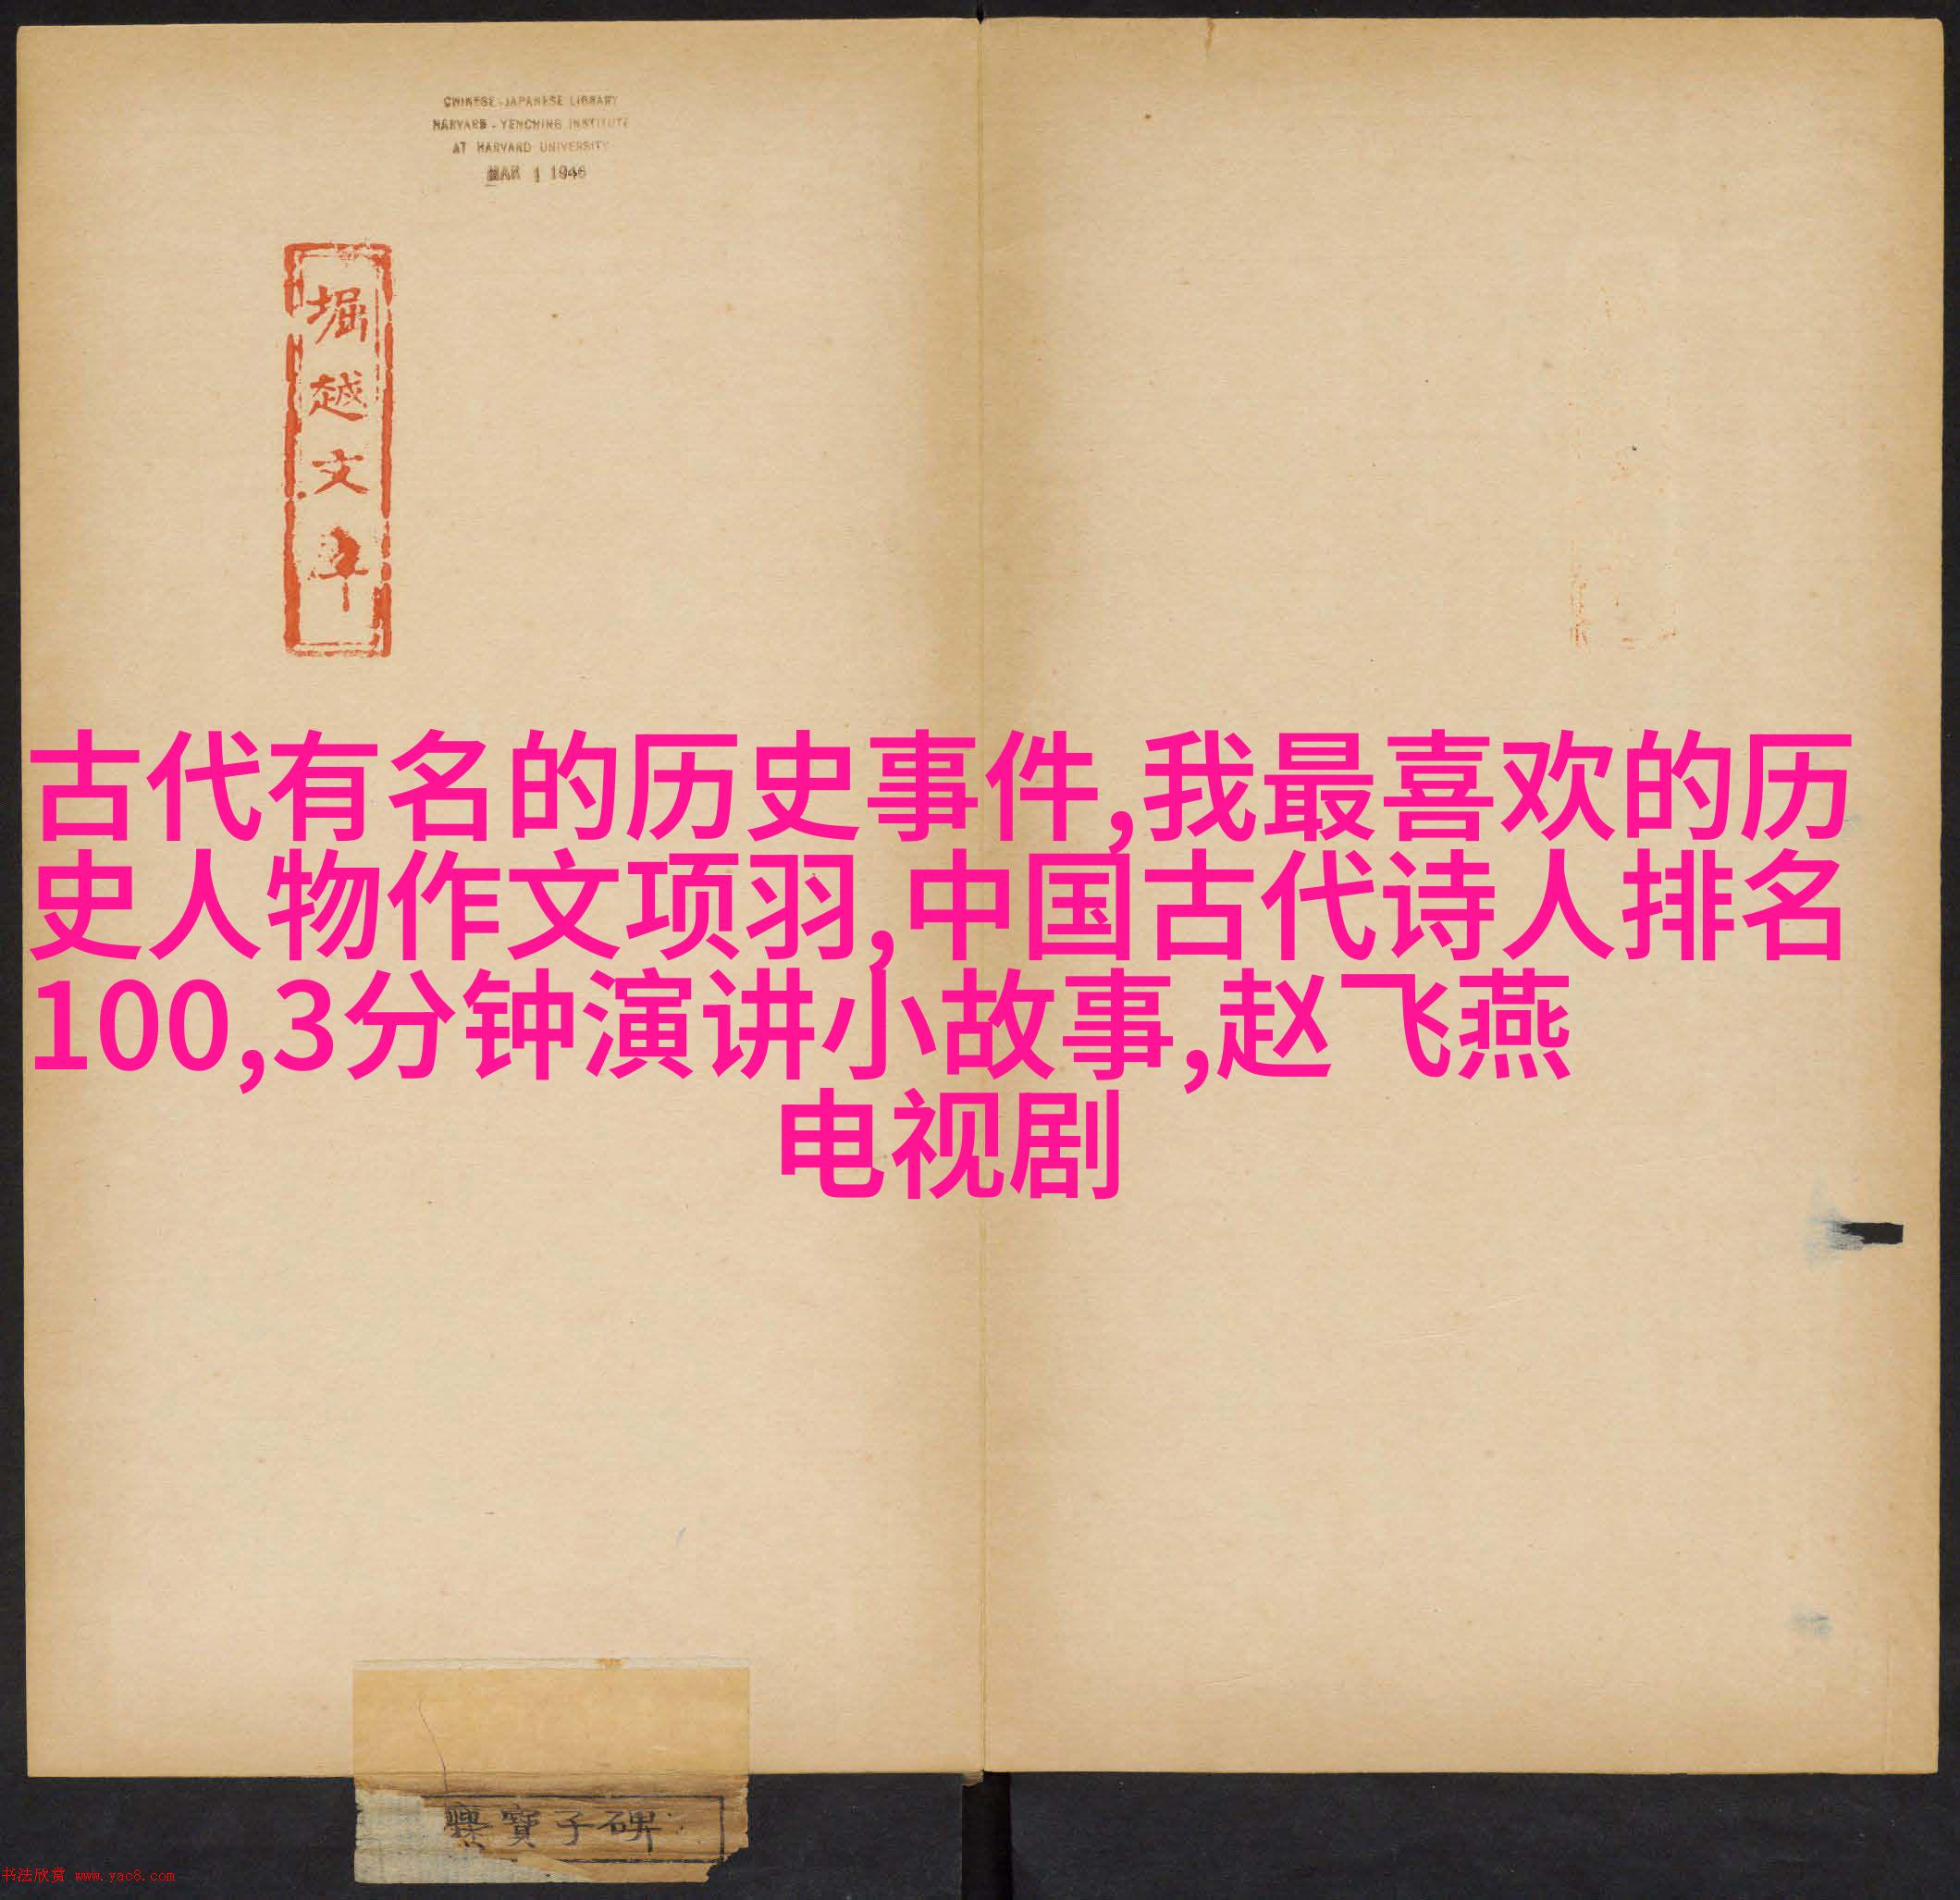 CHINESE-JAPANESE LIBRARY
HARVARD-YENCHING INSTITUTE
AT HARVARD UNIVERSITY
MAR 1 1946
堀越文
古代有名的历史事件,我最喜欢的历
史人物作文项羽,中国古代诗人排名
100,3分钟演讲小故事,赵飞燕
电视剧
爨寶子碑
书法欣赏 www.yac8.com